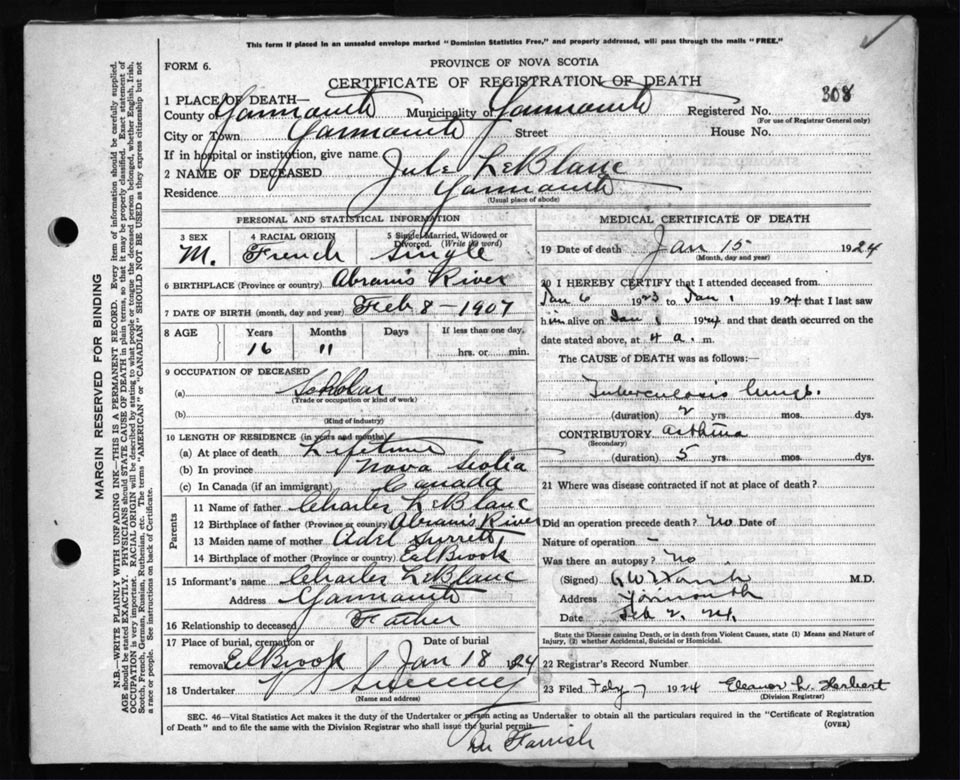 This form if placed in an unsealed envelope marked "Dominion Statistics Free," and properly addressed, will pass through the mails "FREE."
FORM 6.
PROVINCE OF NOVA SCOTIA
CERTIFICATE OF REGISTRATION OF DEATH
308
1 PLACE OF DEATH—
County of Yarmouth Municipality of Yarmouth Registered No.
(For use of Registrar General only)
City or Town Yarmouth Street House No.
If in hospital or institution, give name
2 NAME OF DECEASED Jule LeBlanc
Residence Yarmouth
(Usual place of abode)
PERSONAL AND STATISTICAL INFORMATION
3 SEX 4 RACIAL ORIGIN 5 Single, Married, Widowed or Divorced. (Write the word)
M. French Single
6 BIRTHPLACE (Province or country) Abrams River
7 DATE OF BIRTH (month, day and year) Feb 8 - 1907
8 AGE Years Months Days If less than one day,
16 11 hrs. or min.
9 OCCUPATION OF DECEASED
(a) Scholar
(Trade or occupation or kind of work)
(b)
(Kind of industry)
10 LENGTH OF RESIDENCE (in years and months)
(a) At place of death Lifetime
(b) In province Nova Scotia
(c) In Canada (if an immigrant) Canada
Parents
11 Name of father Charles LeBlanc
12 Birthplace of father (Province or country) Abrams River
13 Maiden name of mother Adel Surrett
14 Birthplace of mother (Province or country) Eel Brook
15 Informant's name Charles LeBlanc
Address Yarmouth
16 Relationship to deceased Father
17 Place of burial, cremation or removal Eel Brook Date of burial Jan 18 1924
18 Undertaker V S Sweeney
(Name and address)
MEDICAL CERTIFICATE OF DEATH
19 Date of death Jan 15 1924
(Month, day and year)
20 I HEREBY CERTIFY that I attended deceased from
Jan 6 1923 to Jan 1 1924 that I last saw
him alive on Jan 1 1924 and that death occurred on the
date stated above, at 4 a. m.
The CAUSE of DEATH was as follows:—
Tuberculosis lungs.
(duration) 2 yrs. mos. dys.
CONTRIBUTORY Asthma
(Secondary)
(duration) 5 yrs. mos. dys.
21 Where was disease contracted if not at place of death?
Did an operation precede death? No Date of
Nature of operation —
Was there an autopsy? No
(Signed) M.D.
Address Yarmouth
Date Feb 2. 24.
State the Disease causing Death, or in death from Violent Causes, state (1) Means and Nature of Injury, (2) whether Accidental, Suicidal or Homicidal.
22 Registrar's Record Number
23 Filed Feby 7 1924 Eleanor L. Herbert
(Division Registrar)
SEC. 46—Vital Statistics Act makes it the duty of the Undertaker or person acting as Undertaker to obtain all the particulars required in the "Certificate of Registration
of Death" and to file the same with the Division Registrar who shall issue the burial permit. (OVER)
Dr Farrish
MARGIN RESERVED FOR BINDING
N.B.—WRITE PLAINLY WITH UNFADING INK—THIS IS A PERMANENT RECORD. Every item of information should be carefully supplied.
AGE should be stated EXACTLY. PHYSICIANS should STATE CAUSE OF DEATH in plain terms, so that it may be properly classified. Exact statement of
OCCUPATION is very important. RACIAL ORIGIN will be described by stating to what people or tongue the deceased person belonged, whether English, Irish,
Scotch, French, German, Russian, Ruthenian, etc. The terms "AMERICAN" or "CANADIAN" SHOULD NOT BE USED as they express citizenship but not
a race or people. See instructions on back of Certificate.